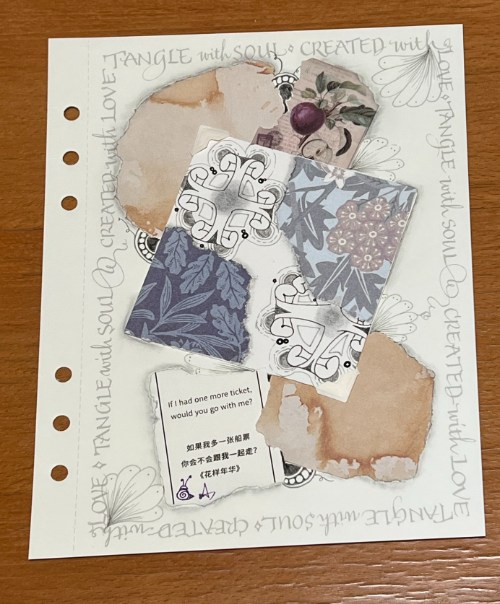 TANGLE with SOUL ⋄ CREATED with
LOVE ⋄ TANGLE with SOUL @ CREATED with LOVE
TANGLE with SOUL ⋄ CREATED with
LOVE ⋄ TANGLE with SOUL @ CREATED with LOVE
If I had one more ticket,
would you go with me?
如果我多一张船票
你会不会跟我一起走?
《花样年华》